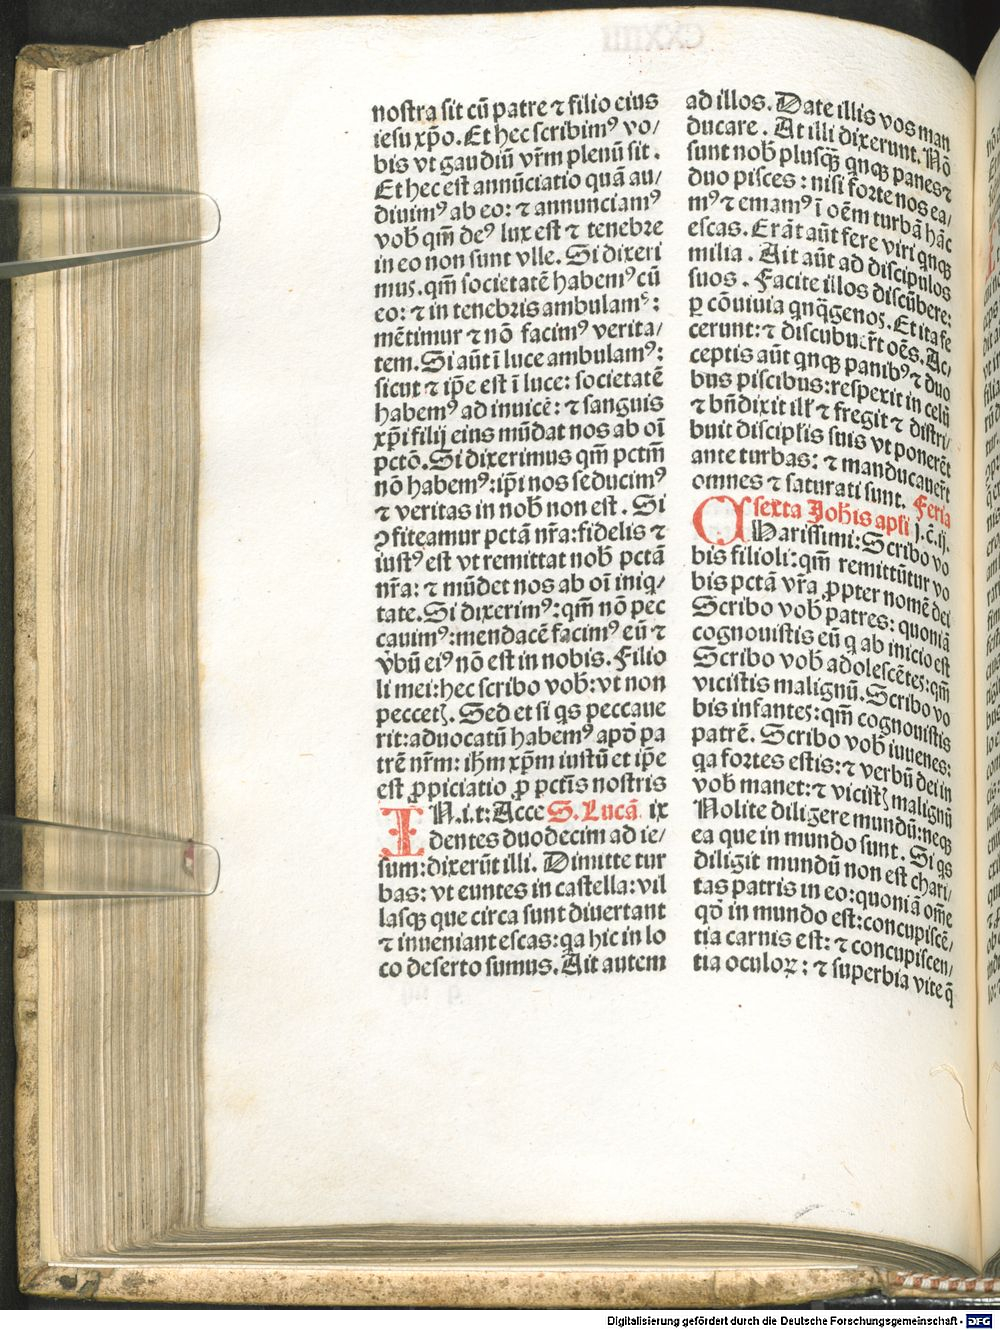 nostra sit cū patre ⁊ filio eius
iesu xp̄o. Et hec scribimꝰ vo/
bis vt gaudiū vr̄m plenū sit.
Et hec est annūciatio quā au/
diuimꝰ ab eo: ⁊ annunciamꝰ
vob̄ qm̄ deꝰ lux est ⁊ tenebre
in eo non sunt vlle. Si dixeri
mus. qm̄ societatē habemꝰ cū
eo: ⁊ in tenebris ambulamꝰ:
mētimur ⁊ nō facimꝰ verita/
tem. Si aūt ī luce ambulamꝰ:
sicut ⁊ ip̄e est ī luce: societatē
habemꝰ ad inuicē: ⁊ sanguis
xp̄i filij eius mūdat nos ab oī
pctō. Si dixerimus qm̄ pctm̄
nō habemꝰ: ip̄i nos seducimꝰ
⁊ veritas in nob̄ non est. Si
ꝯfiteamur pctā nr̄a: fidelis ⁊
iustꝰ est vt remittat nob̄ pctā
nr̄a: ⁊ mūdet nos ab oī iniq̄/
tate. Si dixerimꝰ: qm̄ nō pec
cauimꝰ: mendacē facimꝰ eū ⁊
v̄bū eiꝰ nō est in nobis. Filio
li mei: hec scribo vob̄: vt non
peccetꝭ. Sed et si qs peccaue
rit: aduocatū habemꝰ apō pa
trē nr̄m: ih̄m xp̄m iustū et ip̄e
est ꝓpiciatio ꝓ pctīs nostris
IN.i.t: Acce S. Lucā ix
dentes duodecim ad ie/
sum: dixerūt illi. Dimitte tur
bas: vt euntes in castella: vil
lasqꝫ que circa sunt diuertant
⁊ inueniant escas: qa hic in lo
co deserto sumus. Ait autem
ad illos. Date illis vos man
ducare. At illi dixerunt. Nō
sunt nob̄ plusqꝫ̄ qnqꝫ panes ⁊
duo pisces: nisi forte nos ea/
mꝰ ⁊ emamꝰ ī oēm turbā hāc
escas. Erāt aūt fere viri qnqꝫ
milia. Ait aūt ad discipulos
suos. Facite illos discūbere:
ꝑ cōuiuia qnq̄genos. Et ita fe
cerunt: ⁊ discubuer̄t oēs. Ac/
ceptis aūt qnqꝫ panibꝰ ⁊ duo
bus piscibus: respexit in celū
⁊ bn̄dixit ill̄ ⁊ fregit ⁊ distri/
buit discipl̄is suis vt ponerēt
ante turbas: ⁊ manducauer̄t
omnes ⁊ saturati sunt. Feria
sexta Joh̄is apl̄i j.c̄.ij.
CHarissimi: Scribo vo
bis filioli: qm̄ remittūtur vo
bis pctā vr̄a ꝓpter nomē dei
Scribo vob̄ patres: quoniā
cognouistis eū q ab inicio est
Scribo vob̄ adolescētes: qm̄
vicistis malignū. Scribo vo
bis infantes: qm̄ cognouistis
patrē. Scribo vob̄ iuuenes:
qa fortes estis: ⁊ verbū dei in
vob̄ manet: ⁊ vicistꝭ malignū
Nolite diligere mundū: neqꝫ
ea que in mundo sunt. Si qs
diligit mundū non est chari/
tas patris in eo: quoniā om̄e
qd̄ in mundo est: concupiscē/
tia carnis est: ⁊ concupiscen/
tia oculoꝝ: ⁊ superbia vite q̄
Digitalisierung gefördert durch die Deutsche Forschungsgemeinschaft - DFG